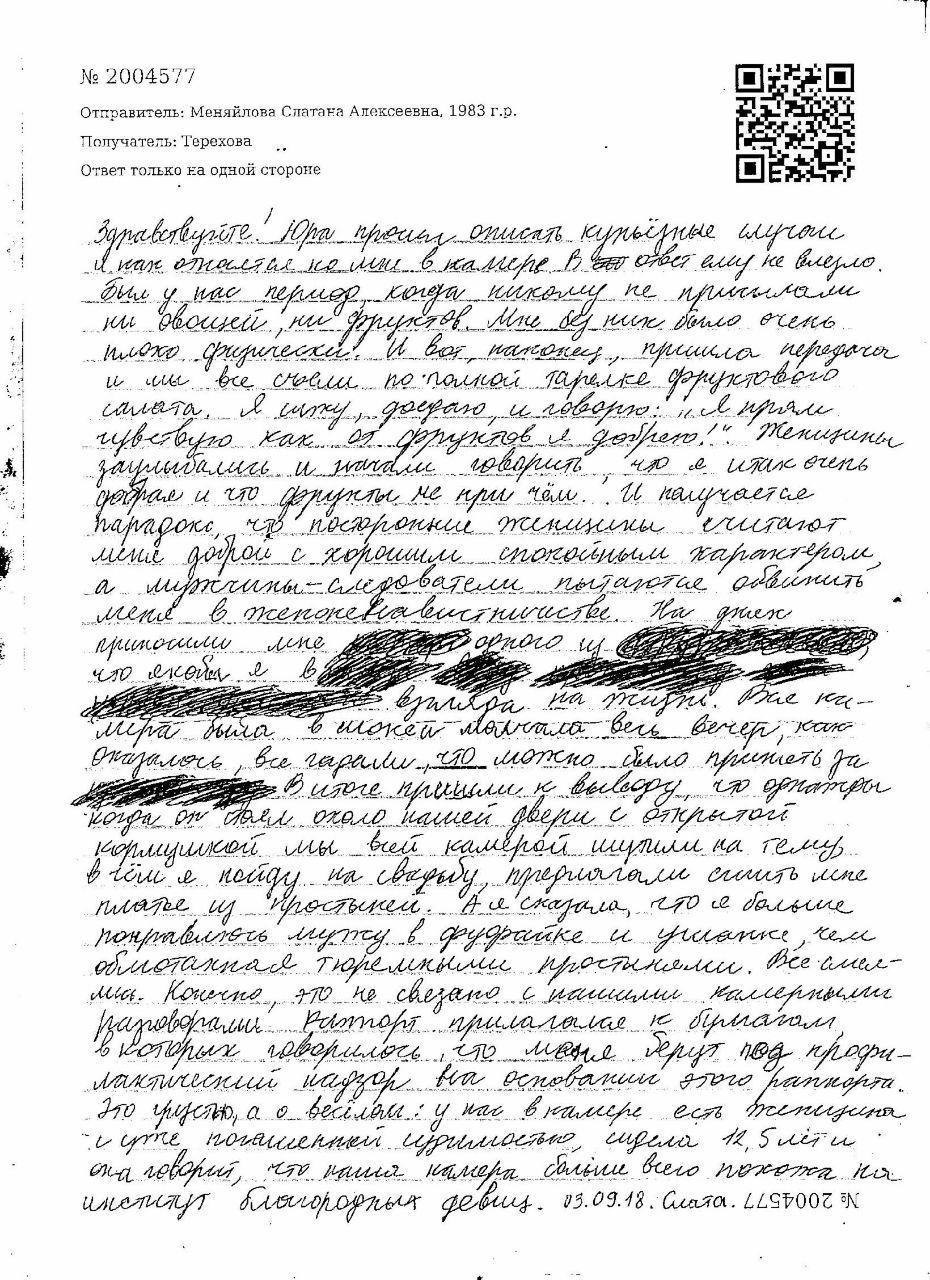 № 2004577
Отправитель: Меняйлова Слатана Алексеевна, 1983 г.р.
Получатель: Терехова
Ответ только на одной стороне
Здравствуйте! Юра просил описать курьёзные случаи
и как относятся ко мне в камере. В ответ ему не влезло.
Был у нас период, когда никому не присылали
ни овощей, ни фруктов. Мне без них было очень
плохо физически. И вот, наконец, пришла передача
и мы все съели по полной тарелке фруктового
салата. Я сижу, доедаю, и говорю: „Я прям
чувствую как от фруктов я добрею!“. Женщины
заулыбались и начали говорить, что я итак очень
добрая и что фрукты не при чём. И получается
парадокс, что посторонние женщины считают
меня доброй с хорошим спокойным характером,
а мужчины-следователи пытаются обвинить
меня в женоненавистничестве. На днях
приносили мне одного из
что якобы я в
взгляда на жизнь. Вся ка-
мера была в шоке и молчала весь вечер, как
оказалось, все гадали, что можно было принять за
В итоге пришли к выводу, что однажды
когда он стоял около нашей двери с открытой
кормушкой мы всей камерой шутили на тему
в чём я пойду на свадьбу, предлагали сшить мне
платье из простыней. А я сказала, что я больше
понравлюсь мужу в фуфайке и ушанке, чем
обмотанная тюремными простынями. Все смея-
лись. Конечно, это не связано с нашими камерными
разговорами. Раппорт прилагался к бумагам,
в которых говорилось, что меня берут под профи-
лактический надзор на основании этого раппорта.
Это грустно, а о весёлом: у нас в камере есть женщина
с уже погашенной судимостью, сидела 12,5 лет и
она говорит, что наша камера больше всего похожа на
институт благородных девиц. 03.09.18. Слата. № 2004577